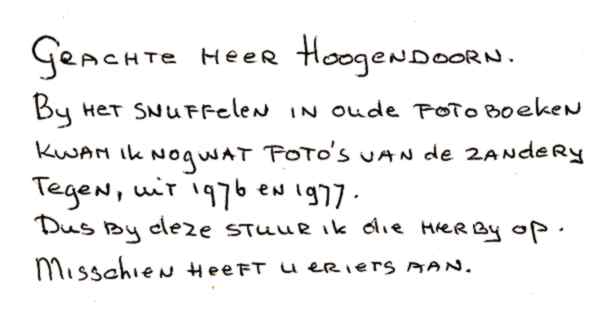 Geachte Heer Hoogendoorn.
By het snuffelen in oude fotoboeken
kwam ik nog wat foto's van de zandery
tegen, uit 1976 en 1977.
Dus by deze stuur ik die hierby op.
Misschien heeft u er iets aan.